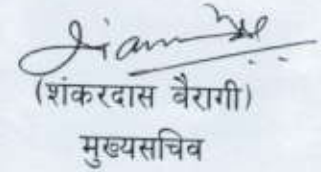 (शंकरदास बैरागी)
मुख्यसचिव